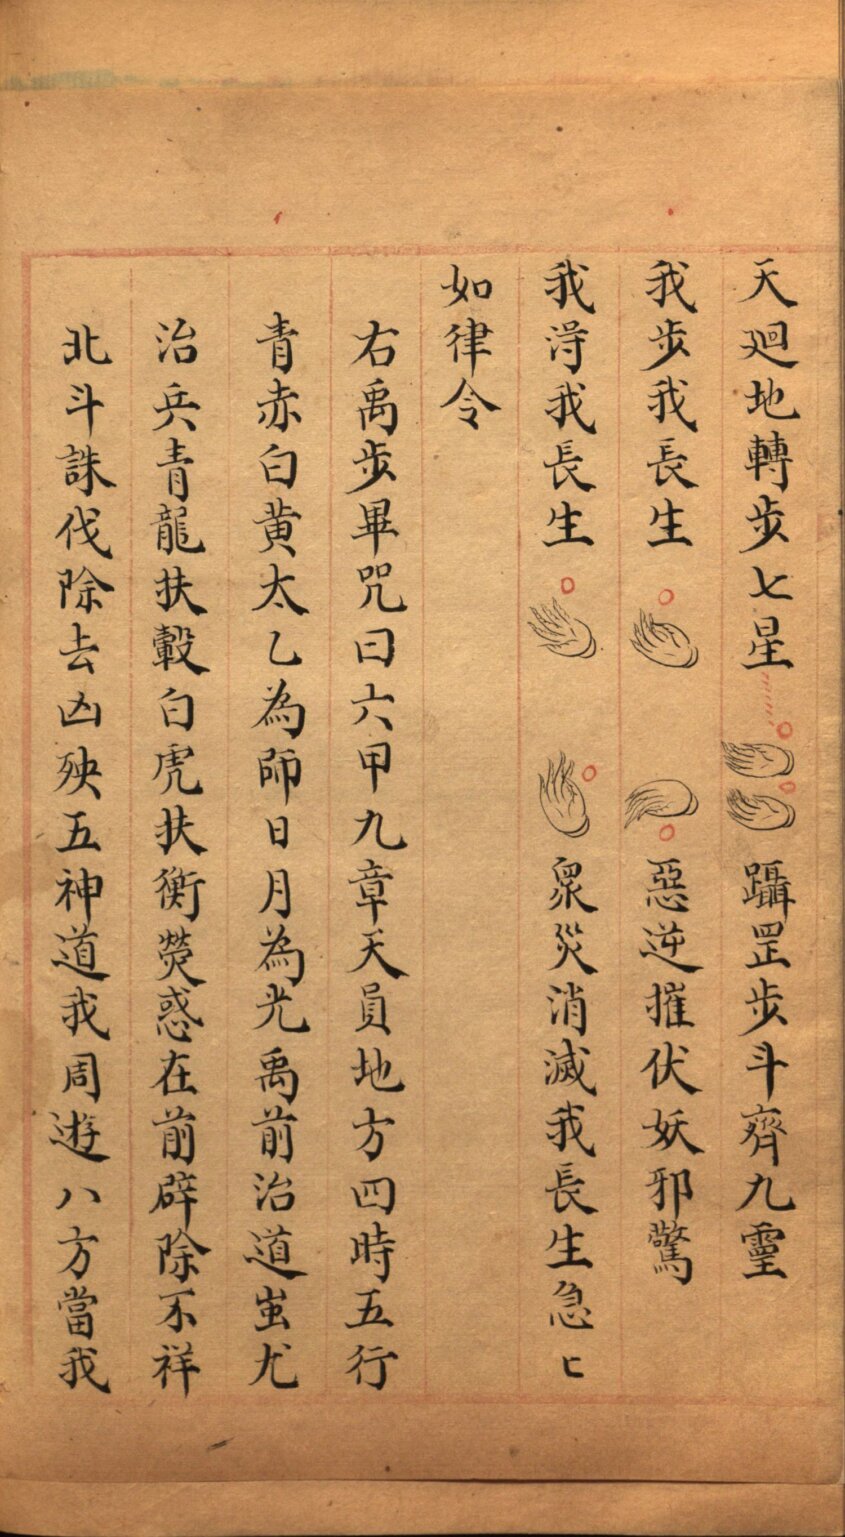 天廻地轉步七星躡罡步斗齊九靈
我步我長生惡逆摧伏妖邪驚
我淂我長生衆災消滅我長生急匕
如律令
右禹步畢咒曰六甲九章天員地方四時五行
青赤白黄太乙為師日月為光禹前治道蚩尤
治兵青龍扶轂白虎扶衡熒惑在前辟除不祥
北斗誅伐除去凶殃五神道我周遊八方當我